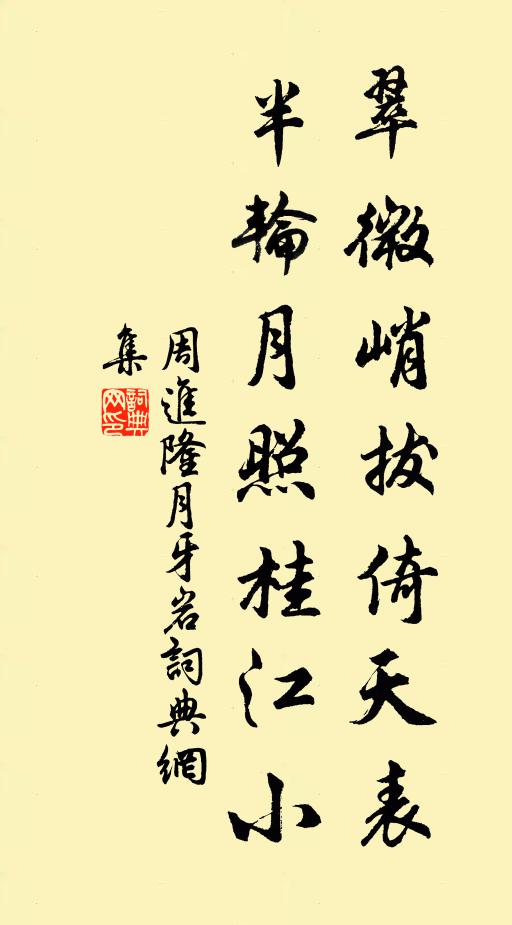 翠微峭拔倚天表
半輪月照桂江小
周進隆月牙岩詞典網
集
詞典
网印